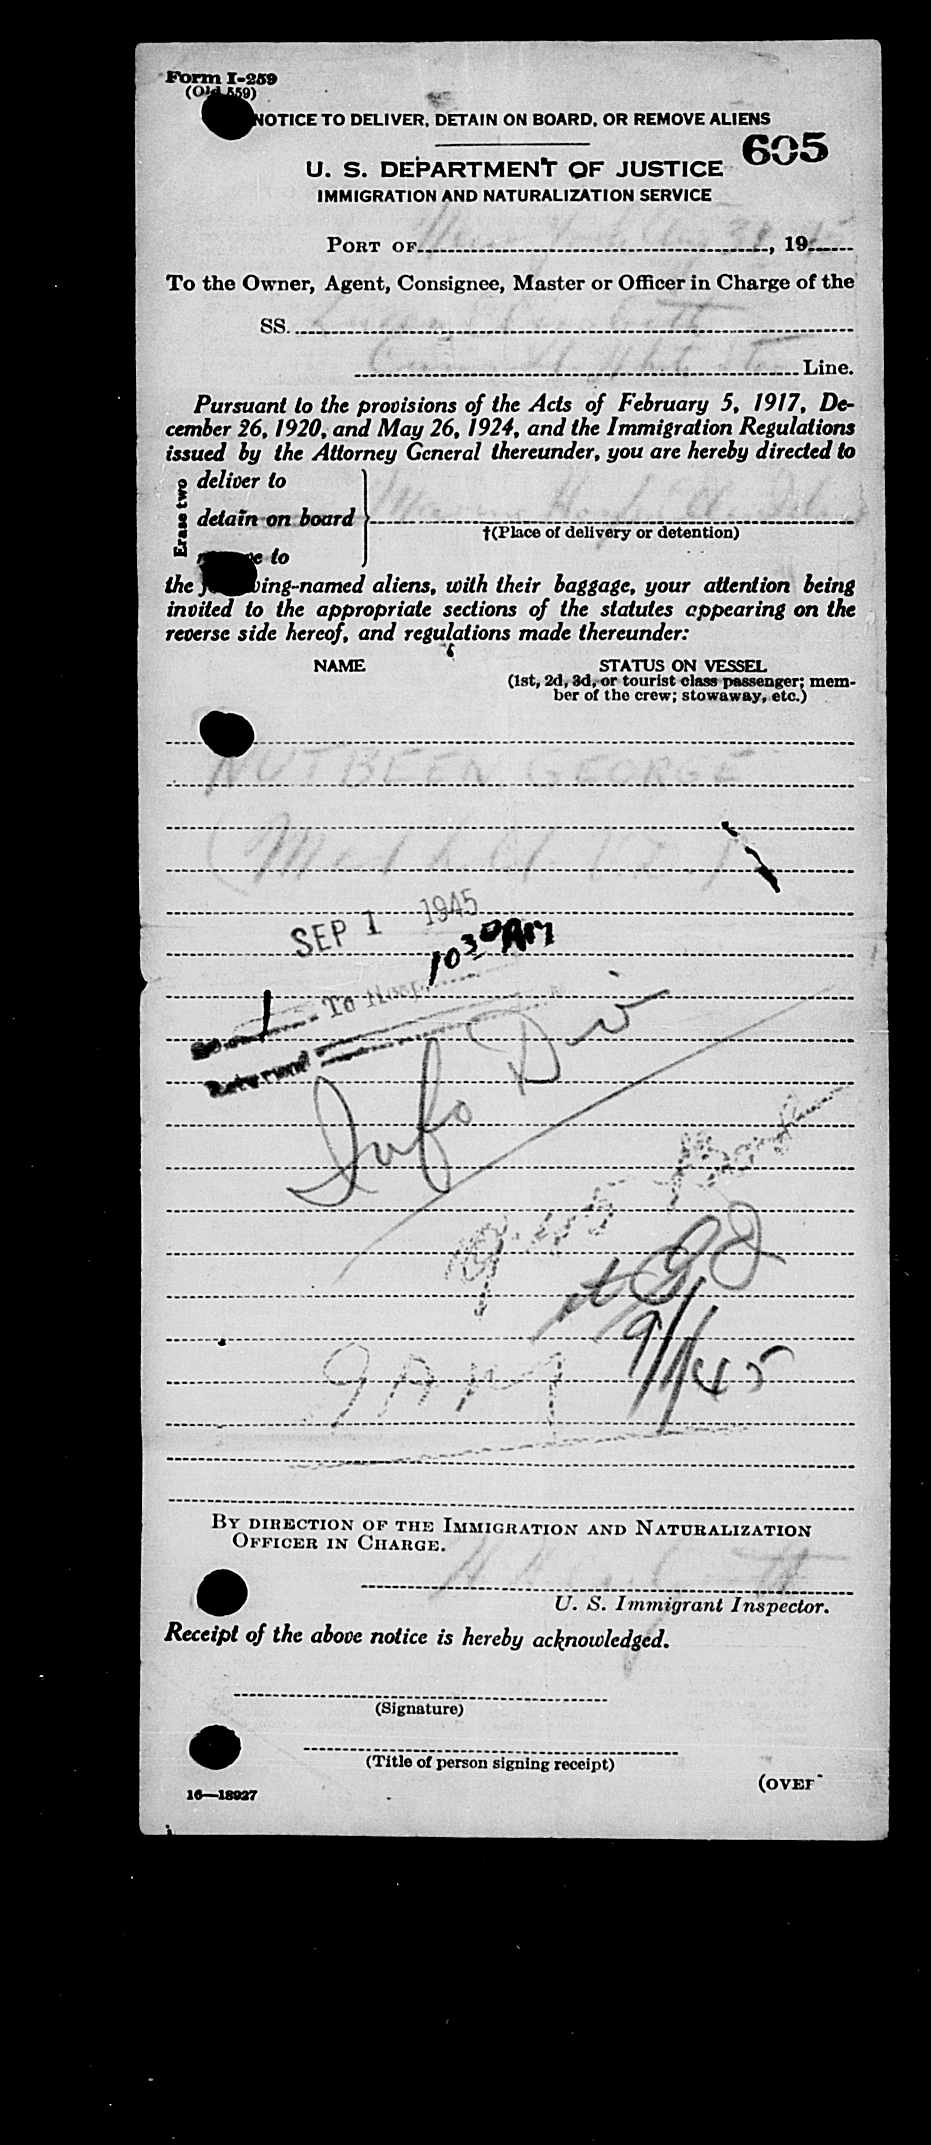 Form I-259
(Old 559)
NOTICE TO DELIVER, DETAIN ON BOARD, OR REMOVE ALIENS
605
U. S. DEPARTMENT OF JUSTICE
IMMIGRATION AND NATURALIZATION SERVICE
PORT OF New York Aug 31, 1945
To the Owner, Agent, Consignee, Master or Officer in Charge of the
SS. Queen Elizabeth
Cunard White Star Line.
Pursuant to the provisions of the Acts of February 5, 1917, De-
cember 26, 1920, and May 26, 1924, and the Immigration Regulations
issued by the Attorney General thereunder, you are hereby directed to
Erase two
deliver to
detain on board
to
Marine Hospital
†(Place of delivery or detention)
the following-named aliens, with their baggage, your attention being
invited to the appropriate sections of the statutes appearing on the
reverse side hereof, and regulations made thereunder:
NAME STATUS ON VESSEL
(1st, 2d, 3d, or tourist class passenger; mem-
ber of the crew; stowaway, etc.)
NUTBEEN GEORGE
(Med
SEP 1 1945
10 30 AM
1 To Hosp.
Returned
Info Div
9.45
9/1/45
9 AM
BY DIRECTION OF THE IMMIGRATION AND NATURALIZATION
OFFICER IN CHARGE.
U. S. Immigrant Inspector.
Receipt of the above notice is hereby acknowledged.
(Signature)
(Title of person signing receipt)
16—18927
(OVER